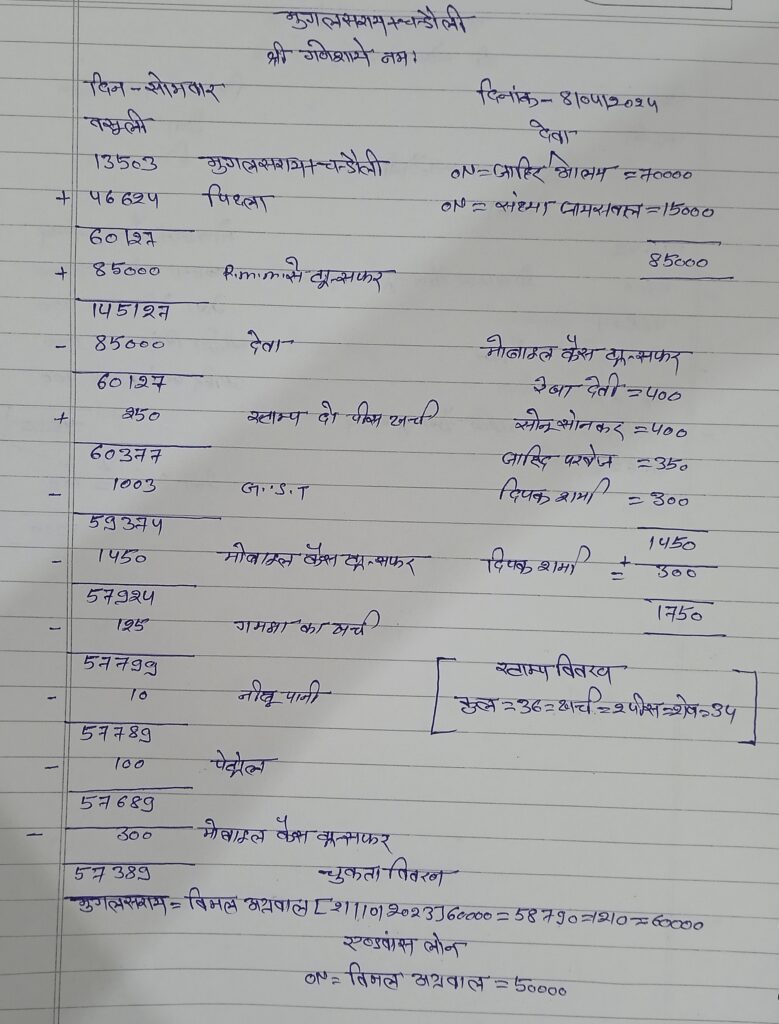 मुगलसराय+चन्दौली
श्री गणेशाये नमः
दिन - सोमवार
दिनांक - 8/04/2024
वसूली
देवा
13503 मुगलसराय+चन्दौली
ON = जाहिर आलम = 70000
+ 46624 पिछला
ON = संध्या जायसवाल = 15000
60127
85000
+ 85000 R.m.m से ट्रान्सफर
145127
- 85000 देवा
मोबाइल कैस ट्रान्सफर
60127
रेखा देवी = 400
+ 250 स्टाम्प दो पीस खर्च
सोनू सोनकर = 400
60377
जाहिद परवेज = 350
- 1003 G.S.T
दिपक शर्मा = 300
59374
1450
- 1450 मोबाइल कैस ट्रान्सफर
दिपक शर्मा + = 300
57924
1750
- 125 गमछा का खर्च
57799
स्टाम्प वितरण
- 10 नीबू पानी
कुल = 36 = खर्च = 2 पीस = शेष = 34
57789
- 100 पेट्रोल
57689
- 300 मोबाइल कैस ट्रान्सफर
57389
चुकता वितरन
मुगलसराय = विमल अग्रवाल [21/10/2023] 60000 = 58790 = 1210 = 60000
एडवांस लोन
ON = विमल अग्रवाल = 50000